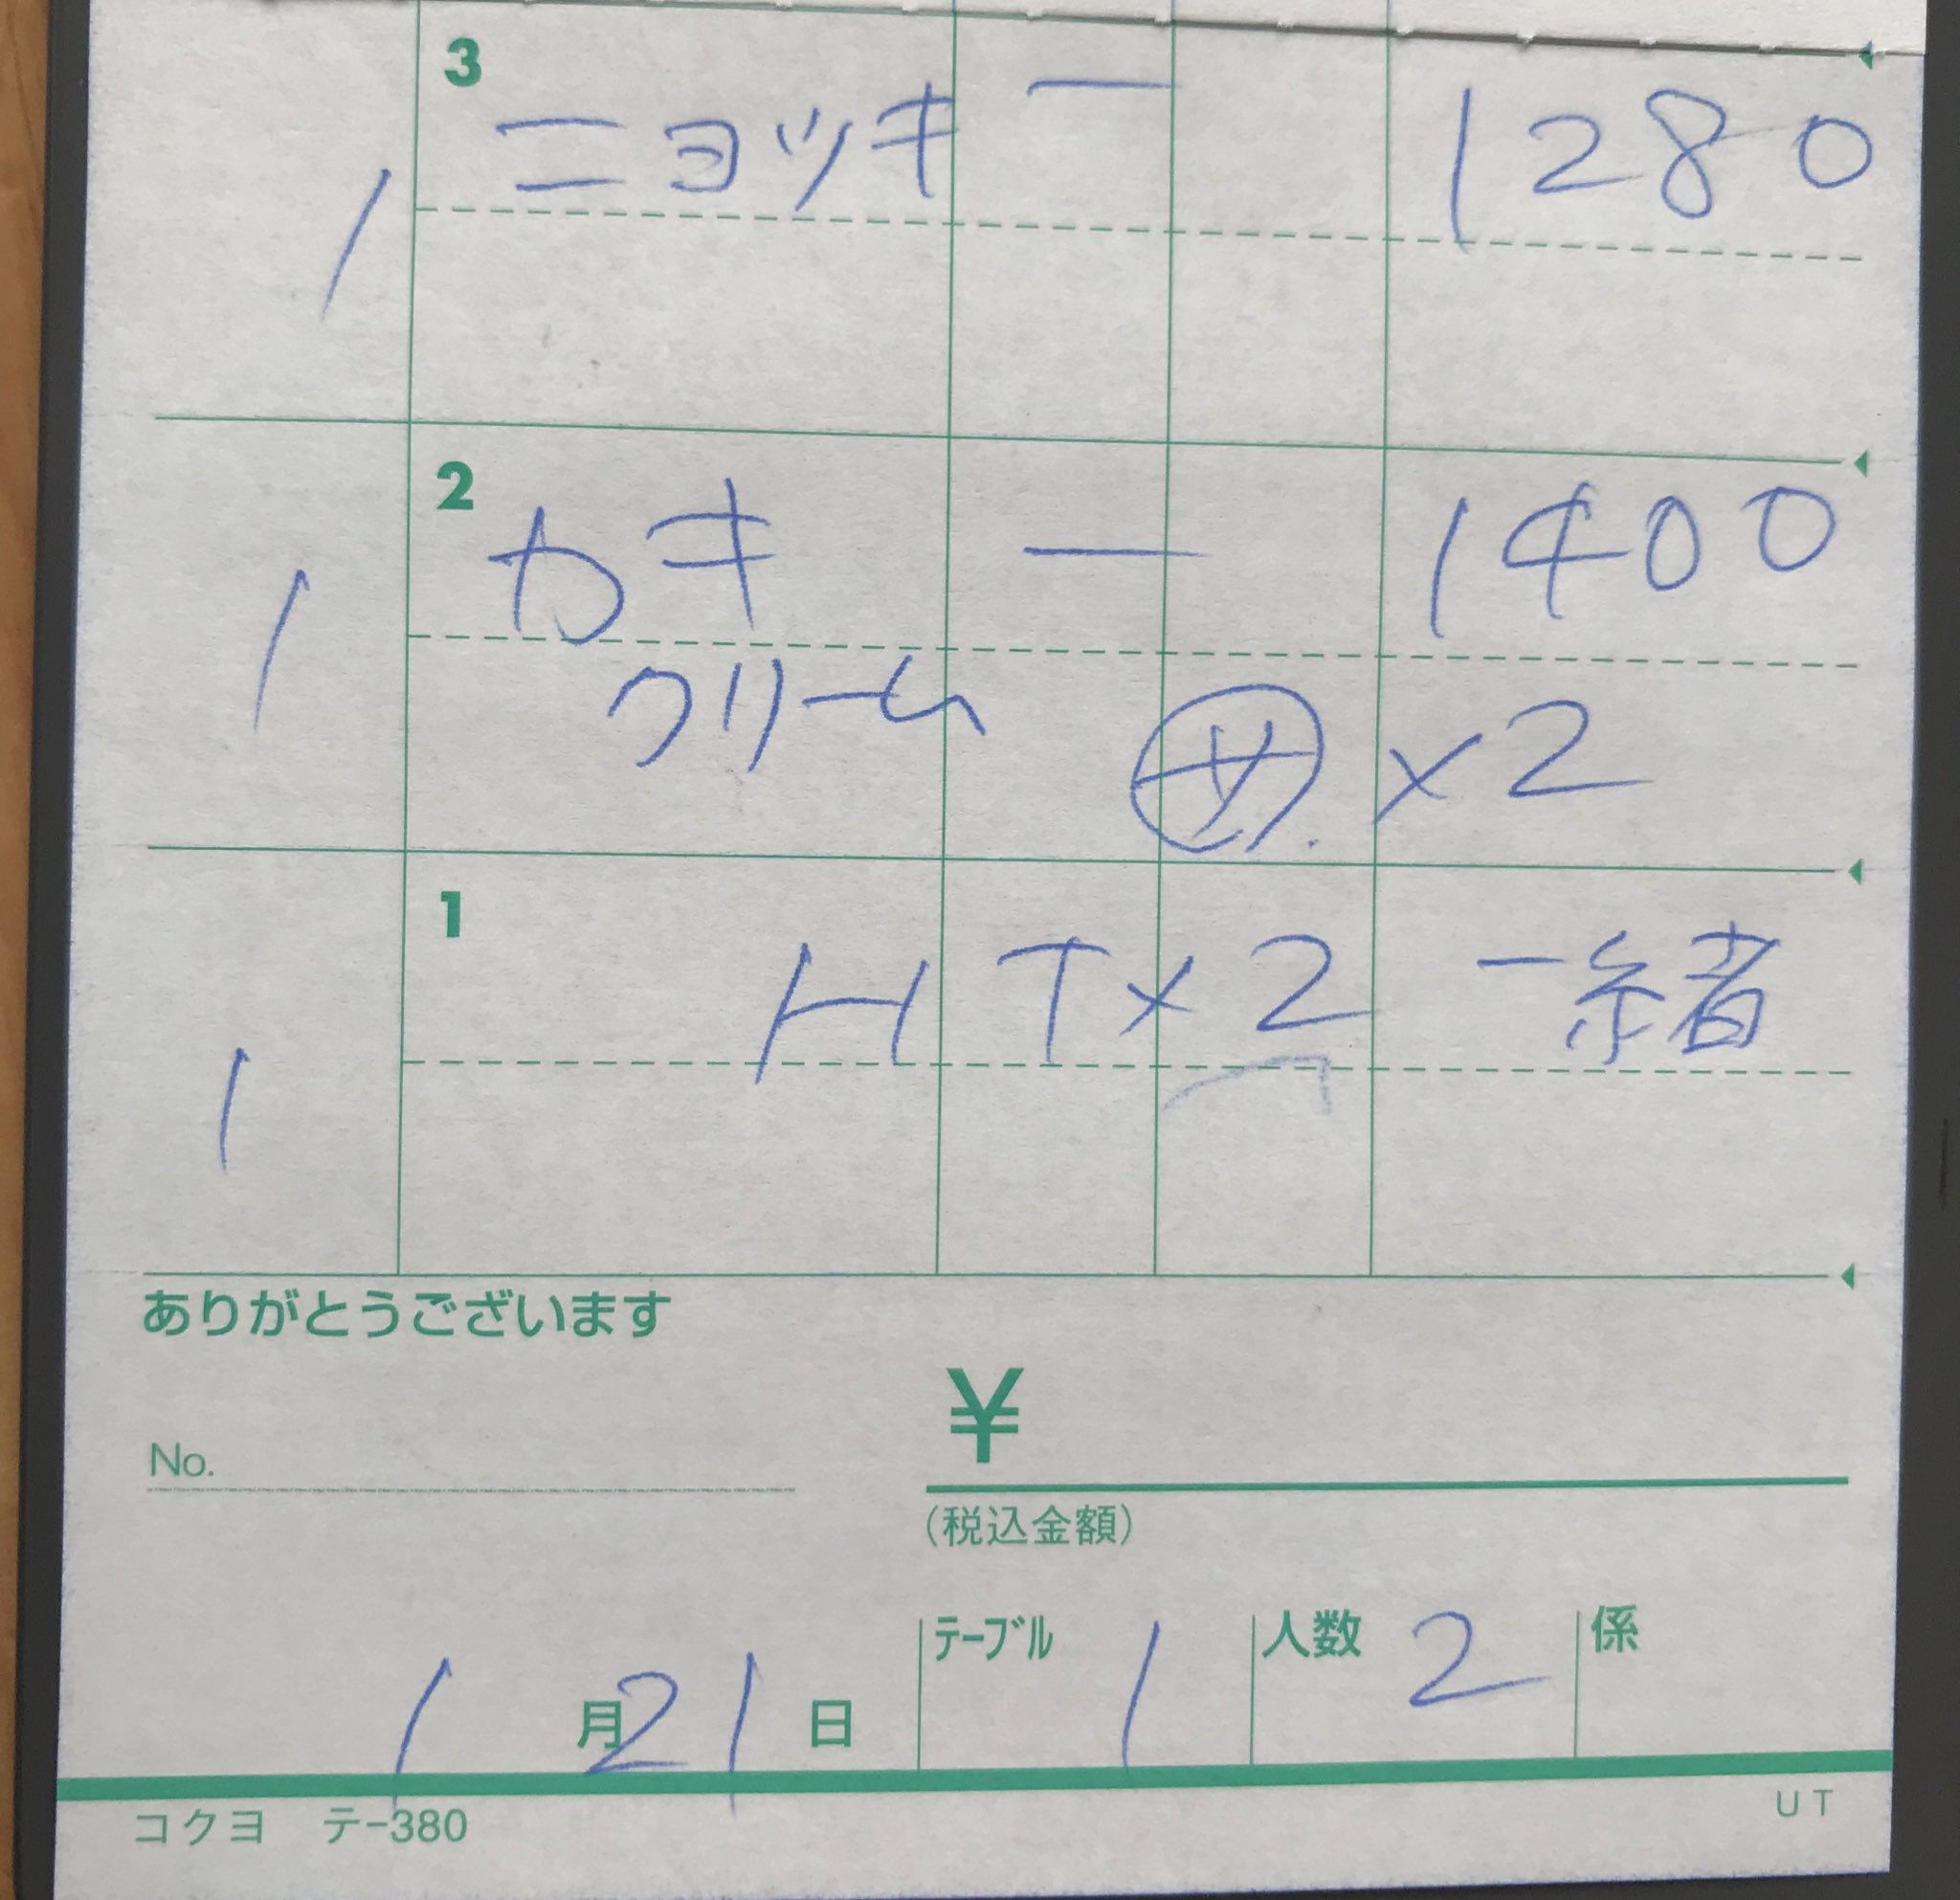 3 ニョッキ ー 1280
1
2 カキ ー 1400
1 クリーム ㊛ ×2
1 HT×2 一緒
1
ありがとうございます
¥
No.
(税込金額)
1月21日 テーブル 1 人数 2 係
コクヨ テ-380 UT